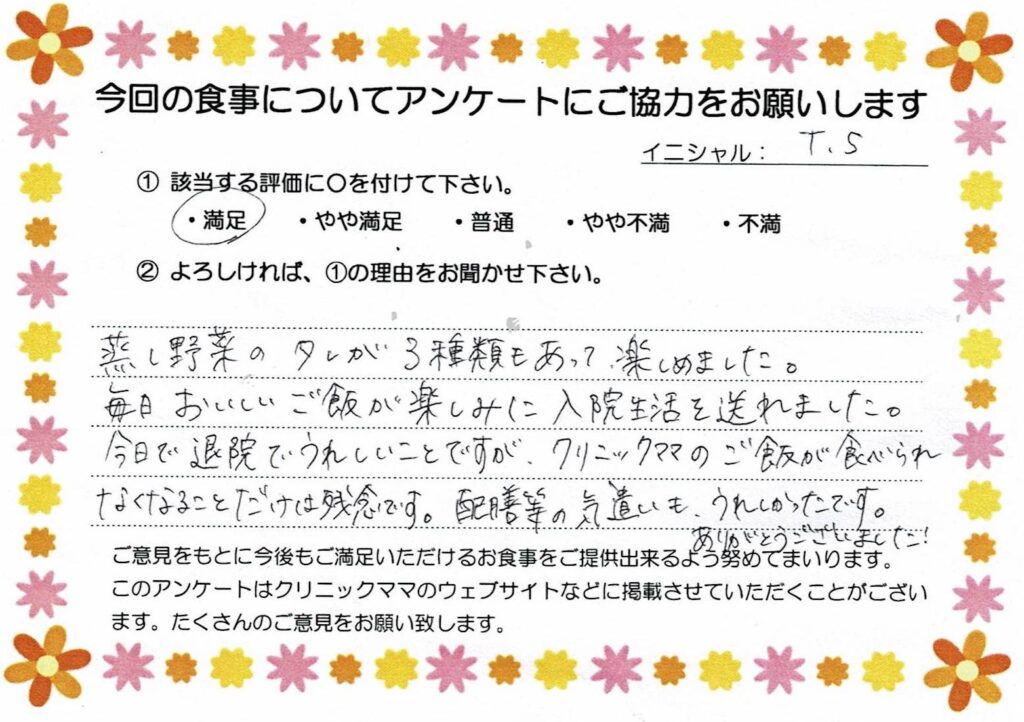 今回の食事についてアンケートにご協力をお願いします
イニシャル： T.S
① 該当する評価に〇を付けて下さい。
・満足 ・やや満足 ・普通 ・やや不満 ・不満
② よろしければ、①の理由をお聞かせ下さい。
蒸し野菜のタレが3種類もあって楽しめました。
毎日おいしいご飯が楽しみに入院生活を送れました。
今日で退院でうれしいことですが、クリニックママのご飯が食べられ
なくなることだけは残念です。配膳等の気遣いも、うれしかったです。
ありがとうございました!
ご意見をもとに今後もご満足いただけるお食事をご提供出来るよう努めてまいります。
このアンケートはクリニックママのウェブサイトなどに掲載させていただくことがござい
ます。たくさんのご意見をお願い致します。